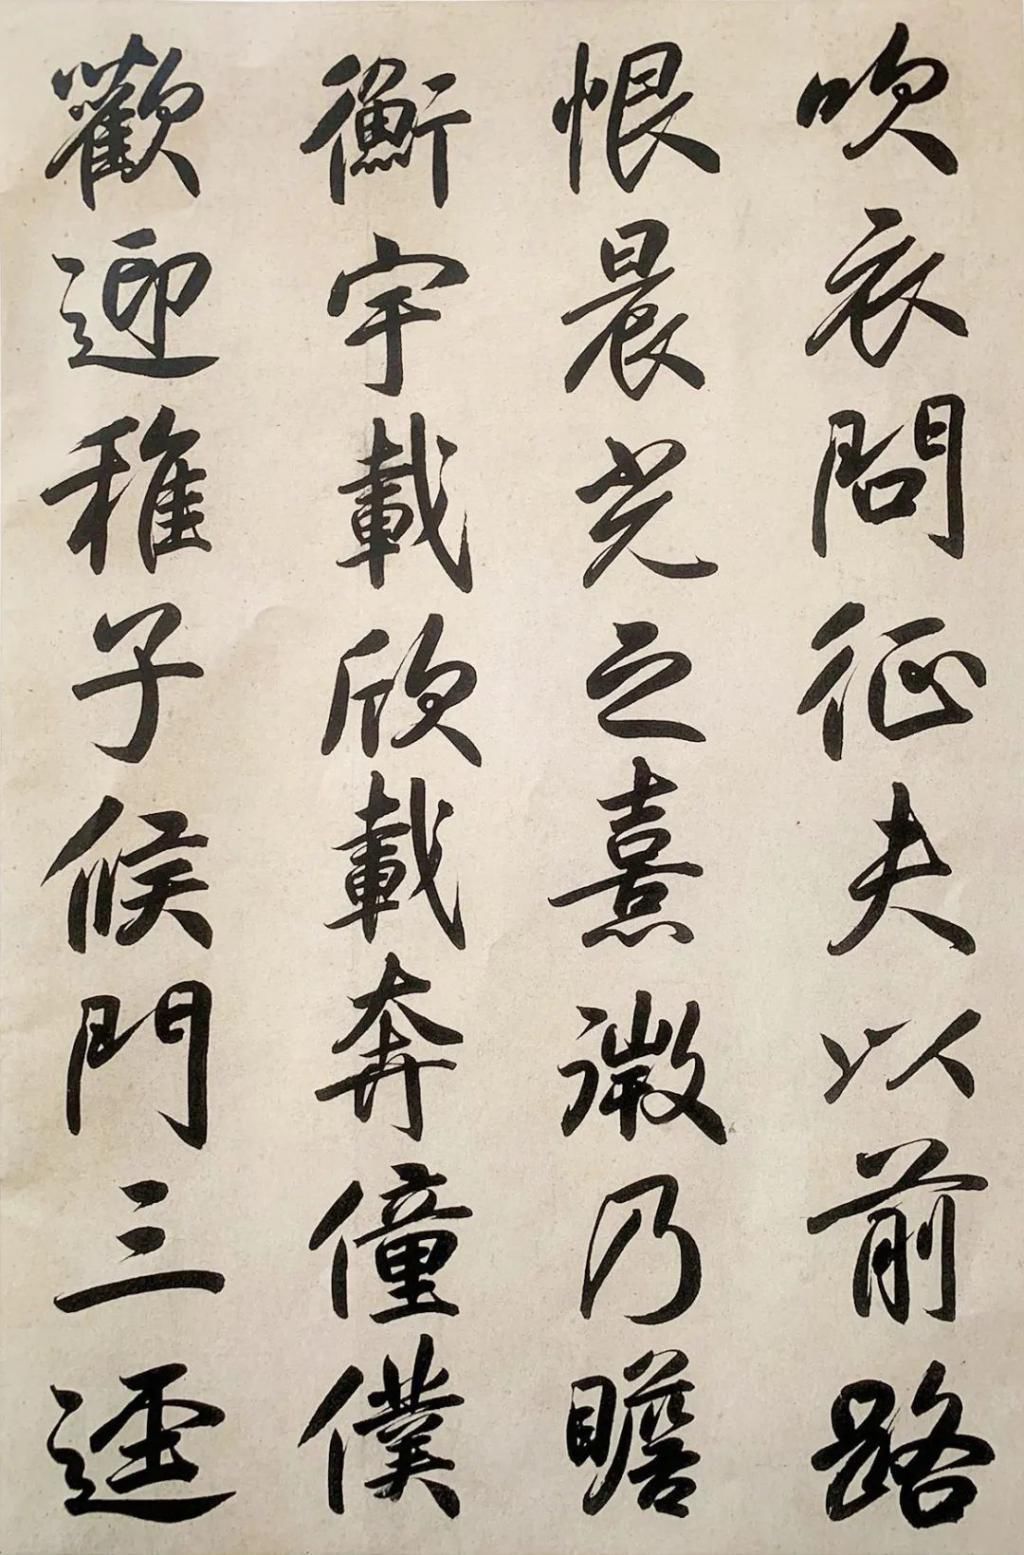 吹衣問征夫以前路
恨晨光之熹微乃瞻
衡宇載欣載奔僮僕
歡迎稚子候門三逕